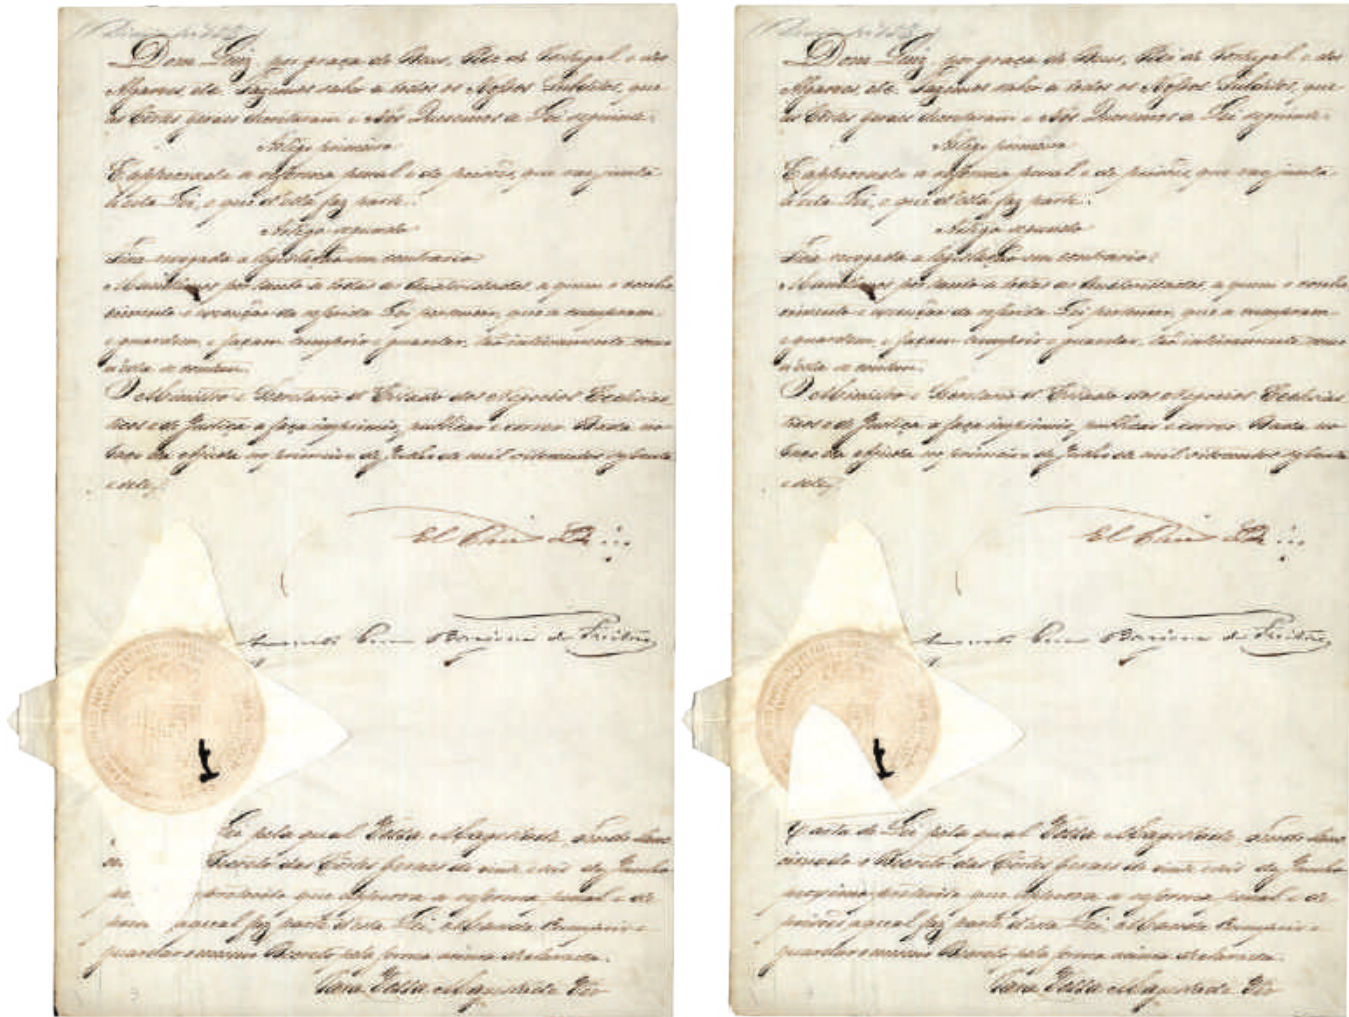 Dom Luiz, por graça de Deus, Rei de Portugal e dos
Algarves, etc. Fazemos saber a todos os Nossos Subditos, que
as Côrtes geraes decretaram e Nós Queremos a Lei seguinte:
Artigo primeiro
É approvada a reforma penal e de prisões, que vae junta
a esta Lei, e que d'esta faz parte.
Artigo segundo
Fica revogada a legislação em contrario.
Mandâmos por tanto a todas as Auctoridades, a quem o conhe
cimento e execução da referida Lei pertencer, que a cumpram
e guardem, e façam cumprir e guardar, tão inteiramente como
n'ella se contem.
O Ministro e Secretario d'Estado dos Negocios Ecclesias
ticos e de Justiça a faça imprimir, publicar e correr. Dada no
Paço da Ajuda no primeiro de Julho de mil oitocentos sessenta
e sete.
El Rei
de Freitas
Lei pela qual Vossa Magestade, Tendo Sanc
Decreto das Côrtes geraes de vinte e seis de Junho
que approva a reforma penal e de
a qual faz parte d'esta Lei, Manda cumprir e
guardar o mesmo Decreto pela forma acima declarada.
Para Vossa Magestade Ver
Dom Luiz, por graça de Deus, Rei de Portugal e dos
Algarves, etc. Fazemos saber a todos os Nossos Subditos, que
as Côrtes geraes decretaram e Nós Queremos a Lei seguinte:
Artigo primeiro
É approvada a reforma penal e de prisões, que vae junta
a esta Lei, e que d'esta faz parte.
Artigo segundo
Fica revogada a legislação em contrario.
Mandâmos por tanto a todas as Auctoridades, a quem o conhe
cimento e execução da referida Lei pertencer, que a cumpram
e guardem, e façam cumprir e guardar, tão inteiramente como
n'ella se contem.
O Ministro e Secretario d'Estado dos Negocios Ecclesias
ticos e de Justiça a faça imprimir, publicar e correr. Dada no
Paço da Ajuda no primeiro de Julho de mil oitocentos sessenta
e sete.
El Rei
de Freitas
Carta de Lei pela qual Vossa Magestade, Tendo Sanc
cionado o Decreto das Côrtes geraes de vinte e seis de Junho
proximo preterito que approva a reforma penal e de
prisões a qual faz parte d'esta Lei, Manda cumprir e
guardar o mesmo Decreto pela forma acima declarada.
Para Vossa Magestade Ver